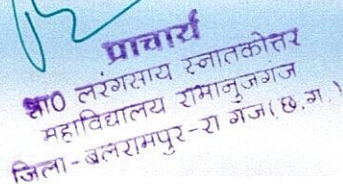 प्राचार्य
शा0 लरंगसाय स्नातकोत्तर
महाविद्यालय रामानुजगंज
जिला-बलरामपुर-रा गंज(छ.ग.)